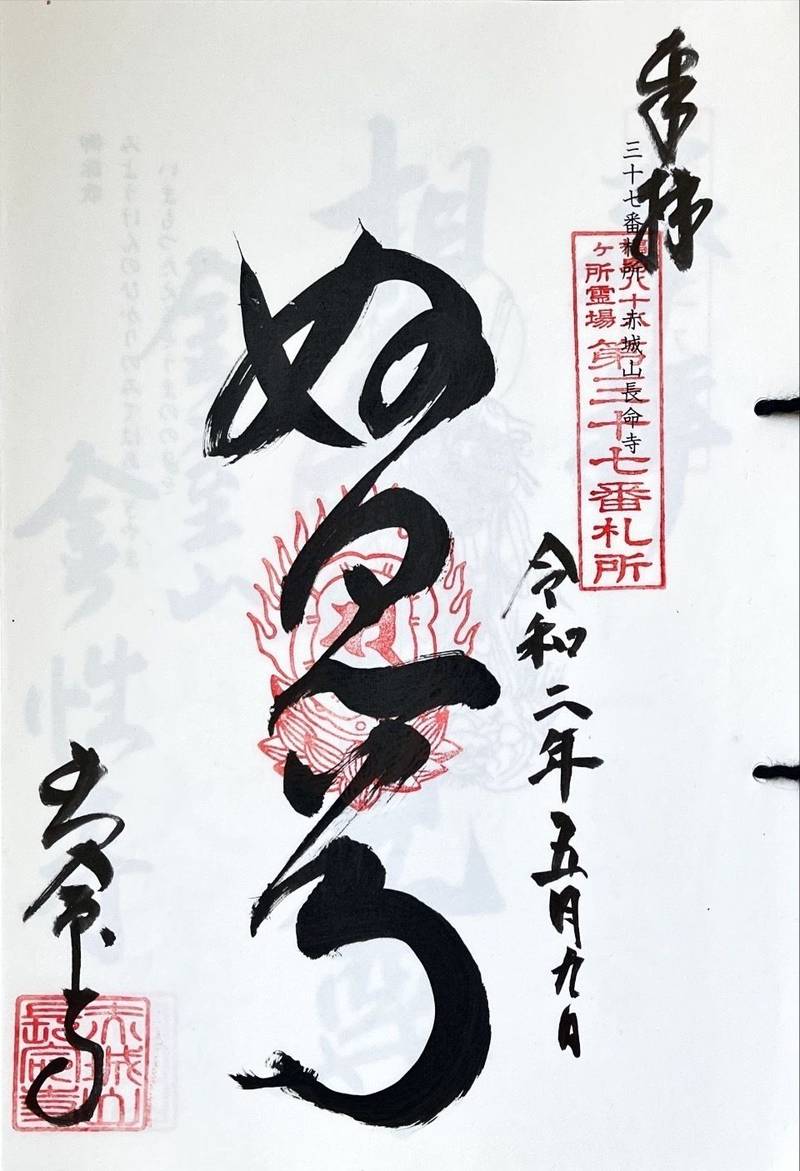 奉拝
三十七番札所 赤城山長命寺
福島八十八
ヶ所霊場 第三十七番札所
令和二年五月九日
妙見尊
長命寺
赤城山
長命寺